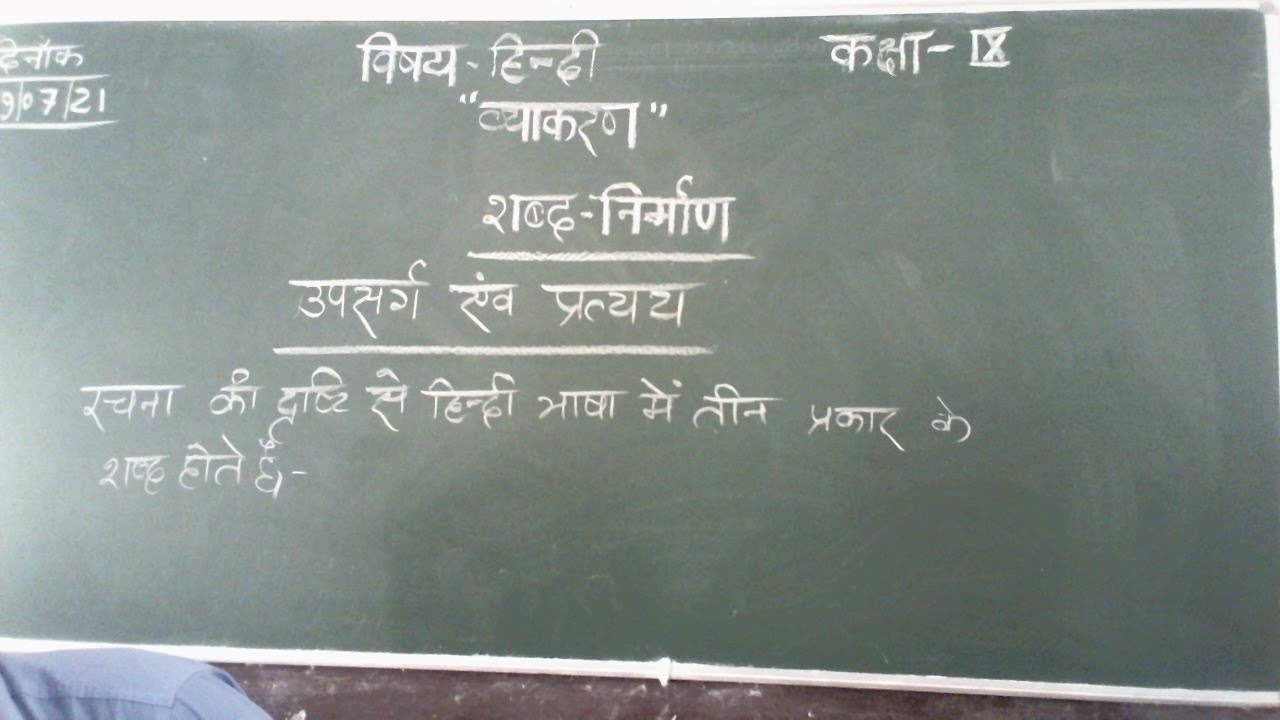 दिनाँक विषय - हिन्दी कक्षा - IX
9/07/21 "व्याकरण"
शब्द-निर्माण
उपसर्ग एंव प्रत्यय
रचना की दृष्टि से हिन्दी भाषा में तीन प्रकार के
शब्द होते हैं-